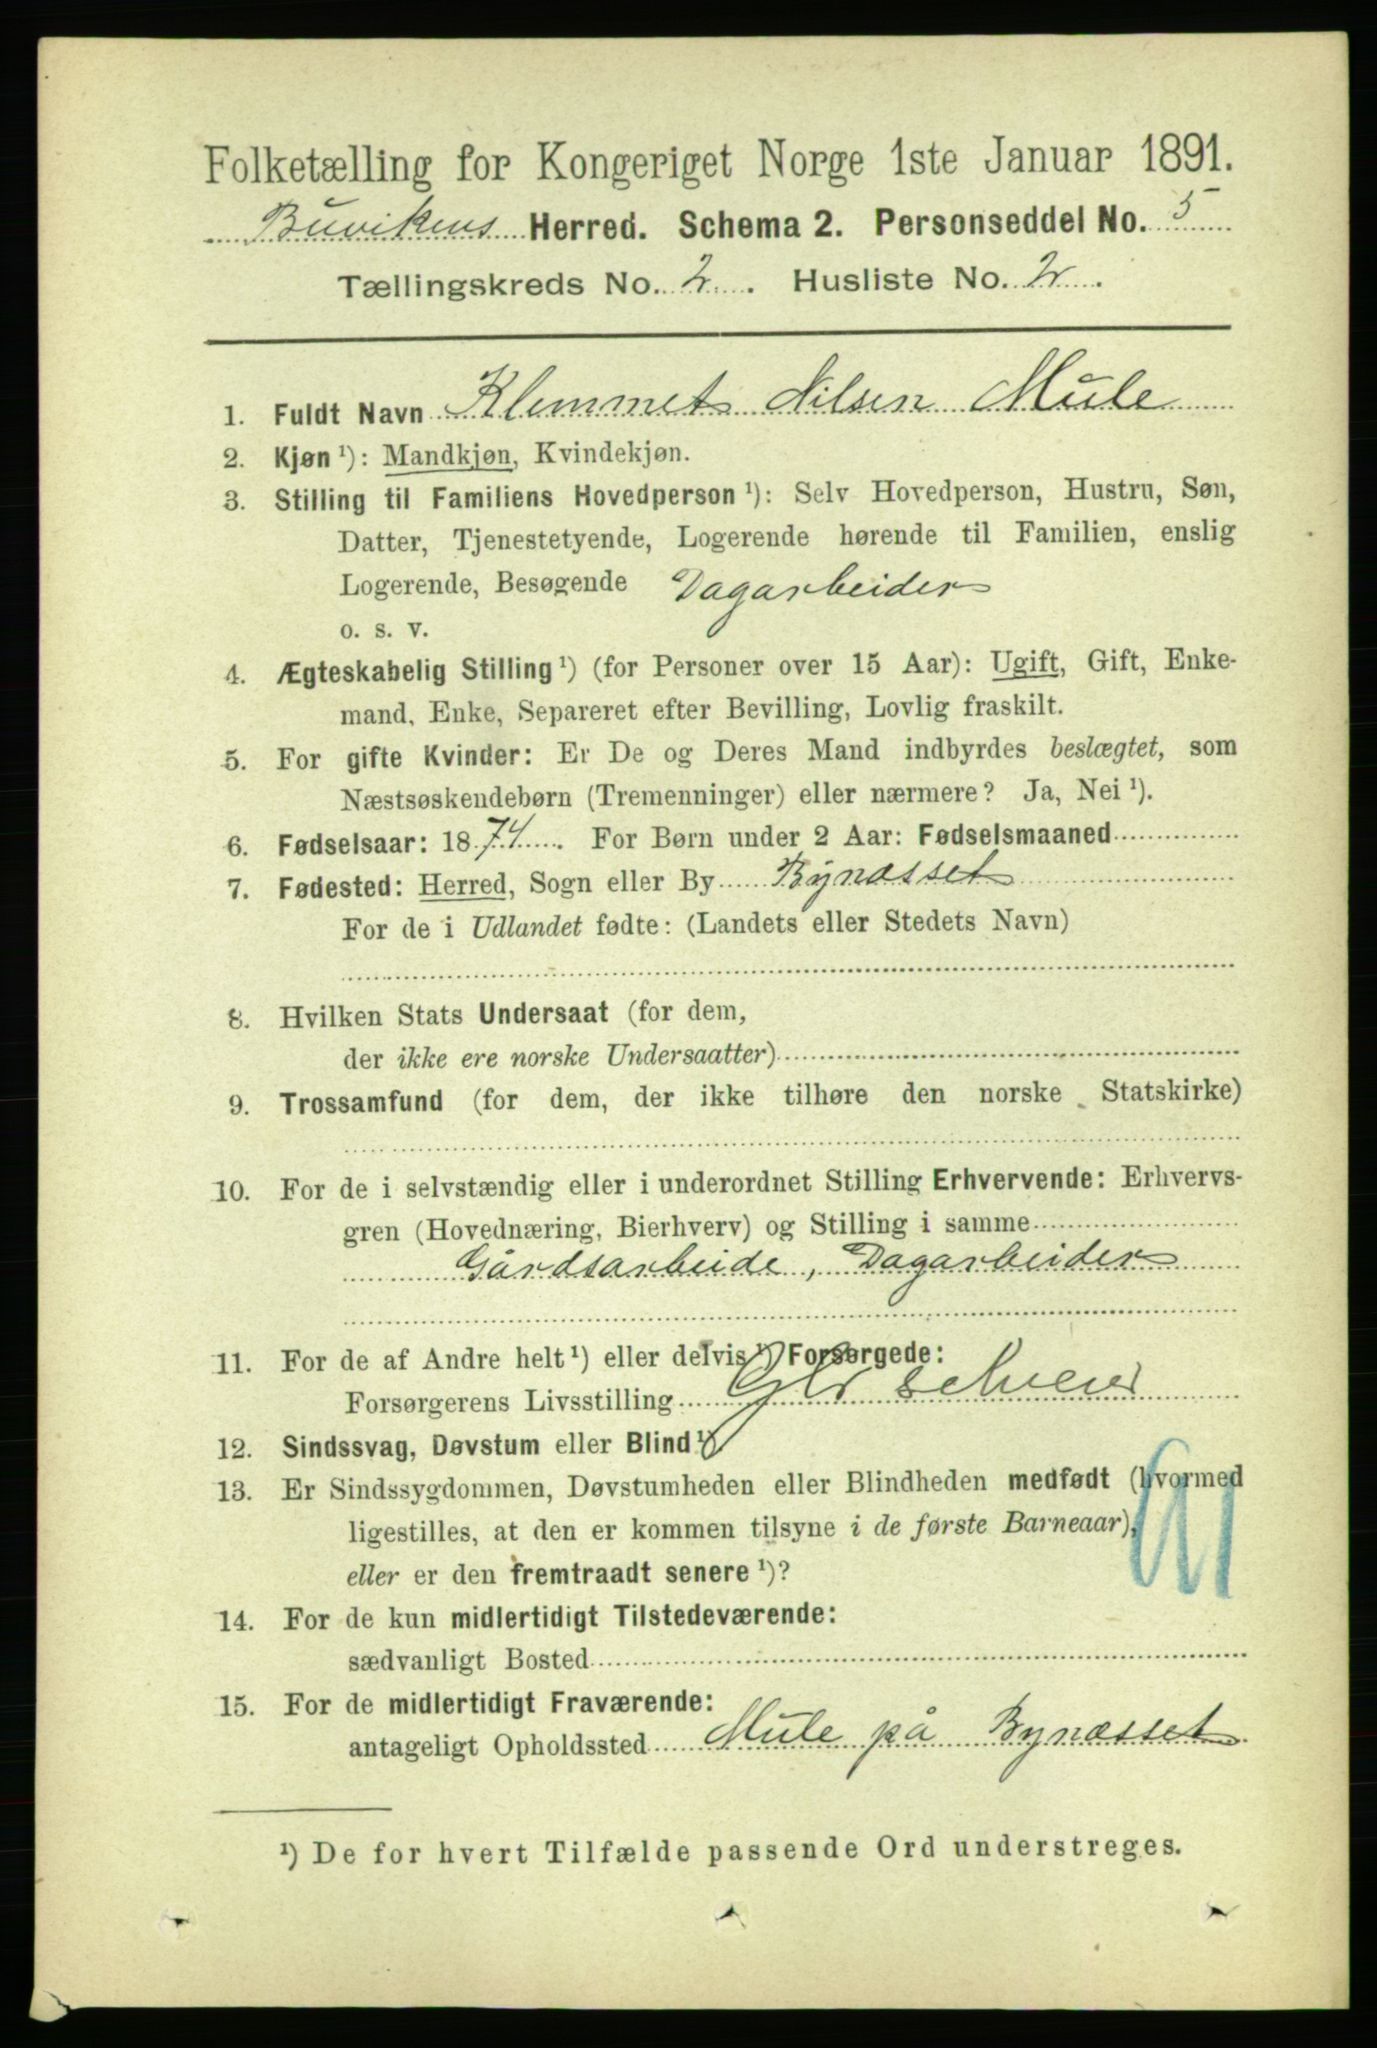 Folketælling for Kongeriget Norge 1ste Januar 1891.
Buvikens Herred. Schema 2. Personseddel No. 5
Tællingskreds No. 2. Husliste No. 2.
1. Fuldt Navn Klemmet Nilsen Mule
2. Kjøn ¹): Mandkjøn, Kvindekjøn.
3. Stilling til Familiens Hovedperson ¹): Selv Hovedperson, Hustru, Søn,
Datter, Tjenestetyende, Logerende hørende til Familien, enslig
Logerende, Besøgende Dagarbeider
o. s. v.
4. Ægteskabelig Stilling ¹) (for Personer over 15 Aar): Ugift, Gift, Enke-
mand, Enke, Separeret efter Bevilling, Lovlig fraskilt.
5. For gifte Kvinder: Er De og Deres Mand indbyrdes beslægtet, som
Næstsøskendebørn (Tremenninger) eller nærmere? Ja, Nei ¹).
6. Fødselsaar: 1874. For Børn under 2 Aar: Fødselsmaaned
7. Fødested: Herred, Sogn eller By Bynæsset
For de i Udlandet fødte: (Landets eller Stedets Navn)
8. Hvilken Stats Undersaat (for dem,
der ikke ere norske Undersaatter)
9. Trossamfund (for dem, der ikke tilhøre den norske Statskirke)
10. For de i selvstændig eller i underordnet Stilling Erhvervende: Erhvervs-
gren (Hovednæring, Bierhverv) og Stilling i samme
Gårdsarbeide, Dagarbeider
11. For de af Andre helt ¹) eller delvis ¹) Forsørgede:
Forsørgerens Livsstilling
12. Sindssvag, Døvstum eller Blind ¹)
13. Er Sindssygdommen, Døvstumheden eller Blindheden medfødt (hvormed
ligestilles, at den er kommen tilsyne i de første Barneaar),
eller er den fremtraadt senere ¹)?
14. For de kun midlertidigt Tilstedeværende:
sædvanligt Bosted
15. For de midlertidigt Fraværende:
antageligt Opholdssted Mule på Bynæsset
¹) De for hvert Tilfælde passende Ord understreges.